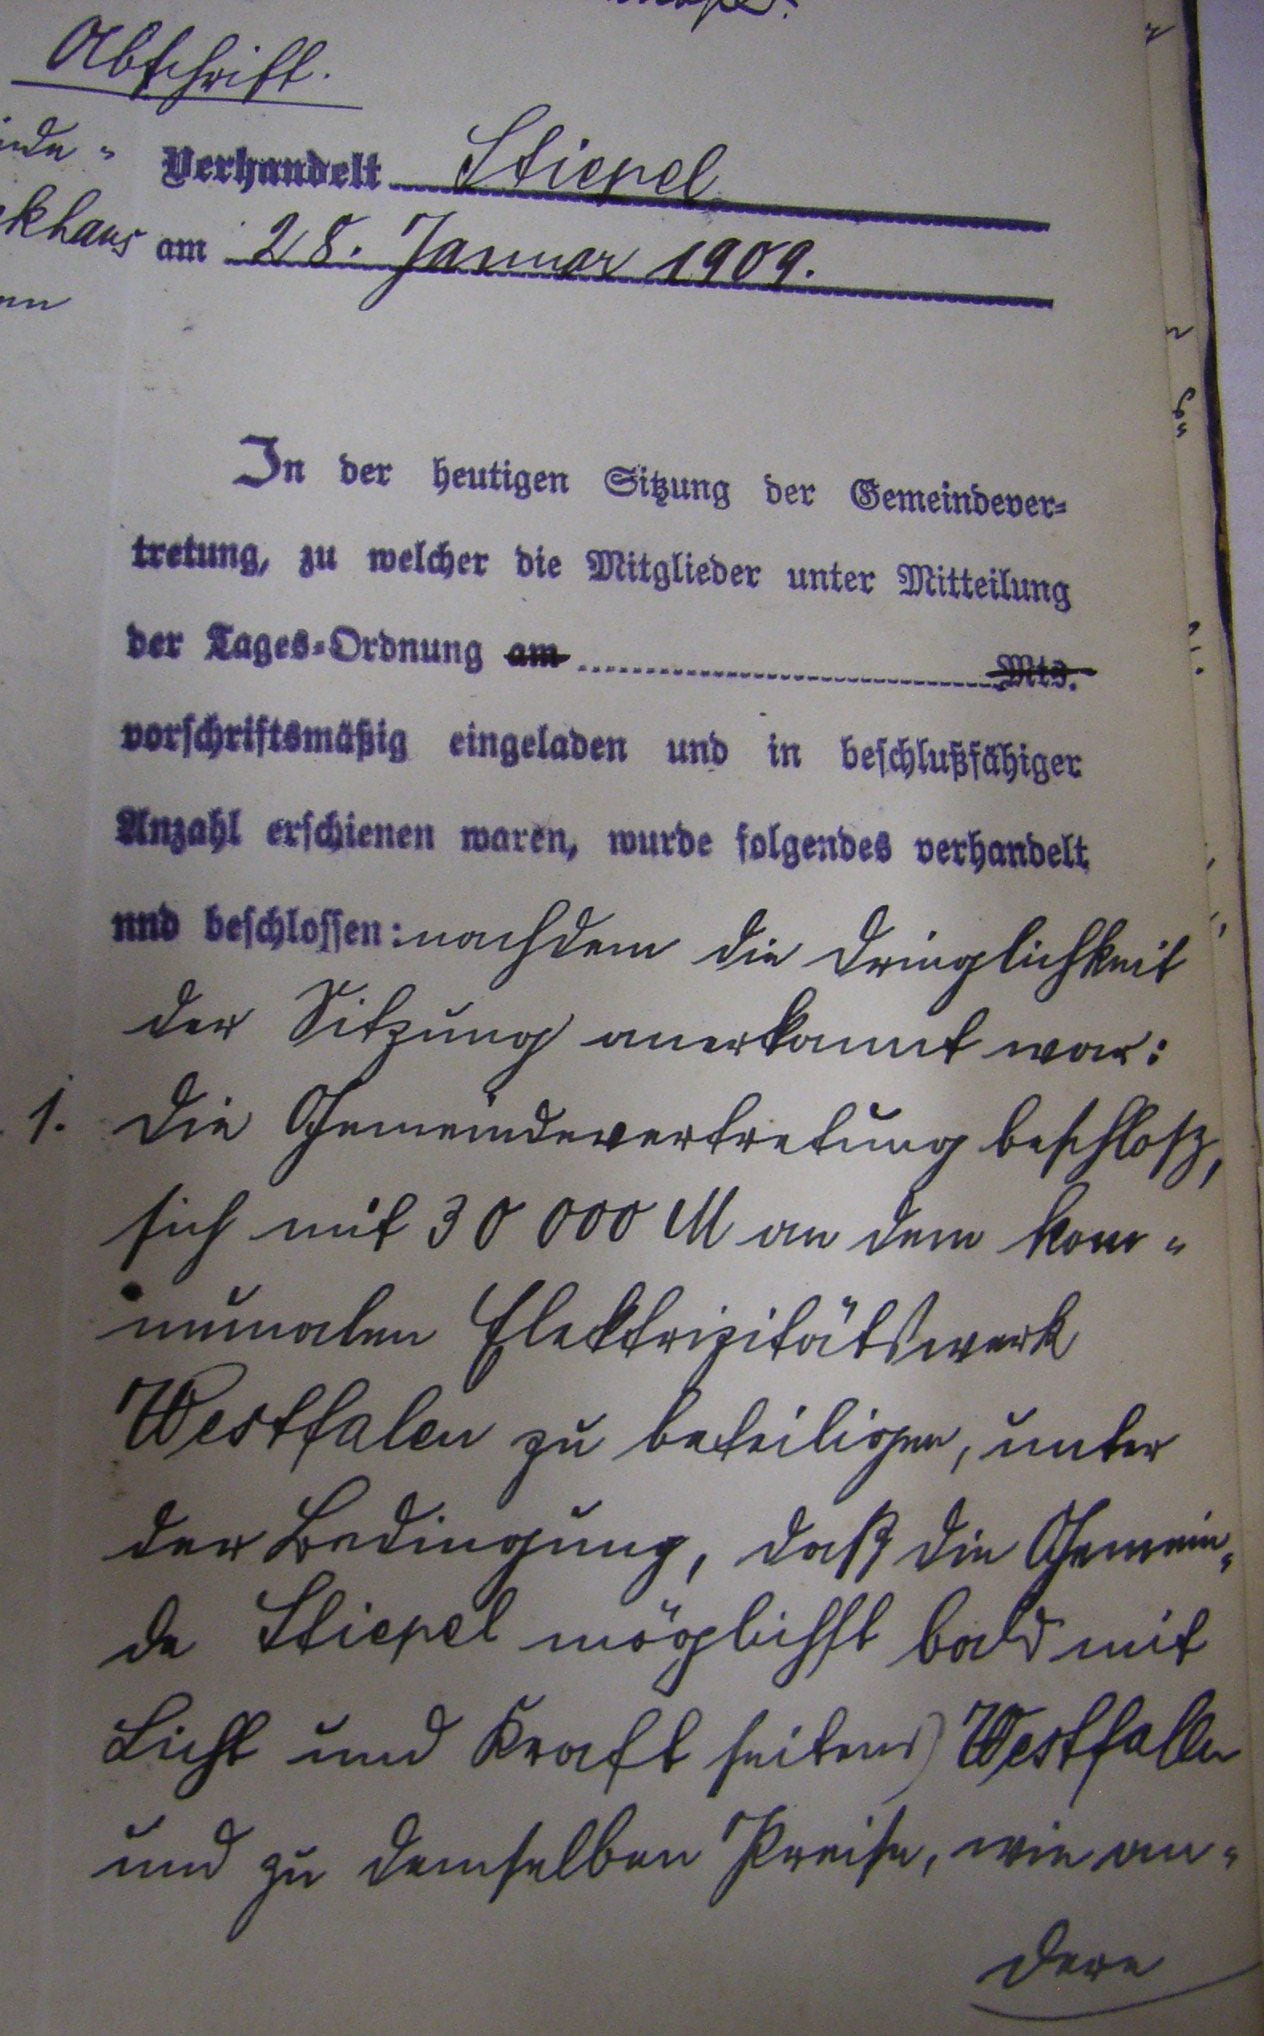 Abschrift.
Verhandelt Stiepel
am 28. Januar 1909.
In der heutigen Sitzung der Gemeindever-
tretung, zu welcher die Mitglieder unter Mitteilung
der Tages-Ordnung am Mts.
vorschriftsmäßig eingeladen und in beschlußfähiger
Anzahl erschienen waren, wurde folgendes verhandelt
und beschlossen: nachdem die Dringlichkeit
der Sitzung anerkannt war:
1. Die Gemeindevertretung beschloß,
sich mit 30 000 M an dem kom-
munalen Elektrizitätswerk
Westfalen zu beteiligen, unter
der Bedingung, daß die Gemein-
de Stiepel möglichst bald mit
Licht und Kraft seitens Westfalen
und zu demselben Preise, wie an-
dere